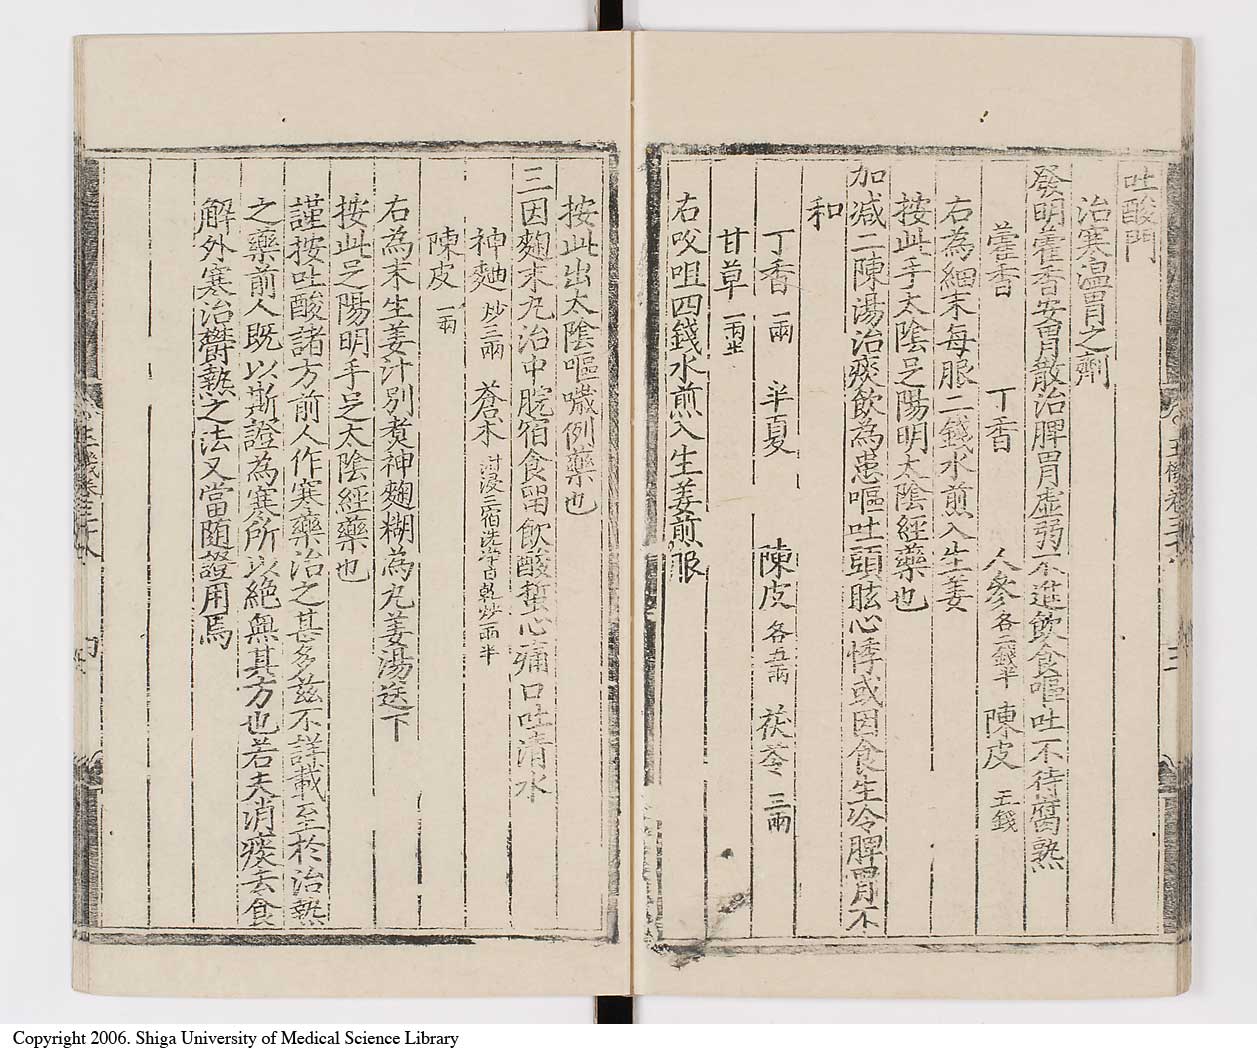 吐酸門
治寒温胃之劑
發明藿香安胃散治脾胃虚弱不進飲食嘔吐不待腐熟
藿香 丁香 人參各二錢半 陳皮五錢
右為細末每服二錢水煎入生姜
按此手太陰足陽明太陰經藥也
加減二陳湯治痰飲為患嘔吐頭眩心悸或因食生冷脾胃不
和
丁香一兩 半夏 陳皮各五兩 茯苓三兩
甘草一兩半
右㕮咀四錢水煎入生姜煎服
按此出太陰嘔噦例藥也
三因麴术丸治中脘宿食留飲酸螫心痛口吐清水
神麯炒三兩 蒼术泔浸三宿洗净日乾炒一兩半
陳皮一兩
右為末生姜汁別煑神麴糊為丸姜湯送下
按此足陽明手足太陰經藥也
謹按吐酸諸方前人作寒藥治之甚多兹不詳載至於治熱
之藥前人既以斯證為寒所以絶無其方也若夫消痰去食
解外寒治欝熱之法又當随證用焉
Copyright 2006. Shiga University of Medical Science Library